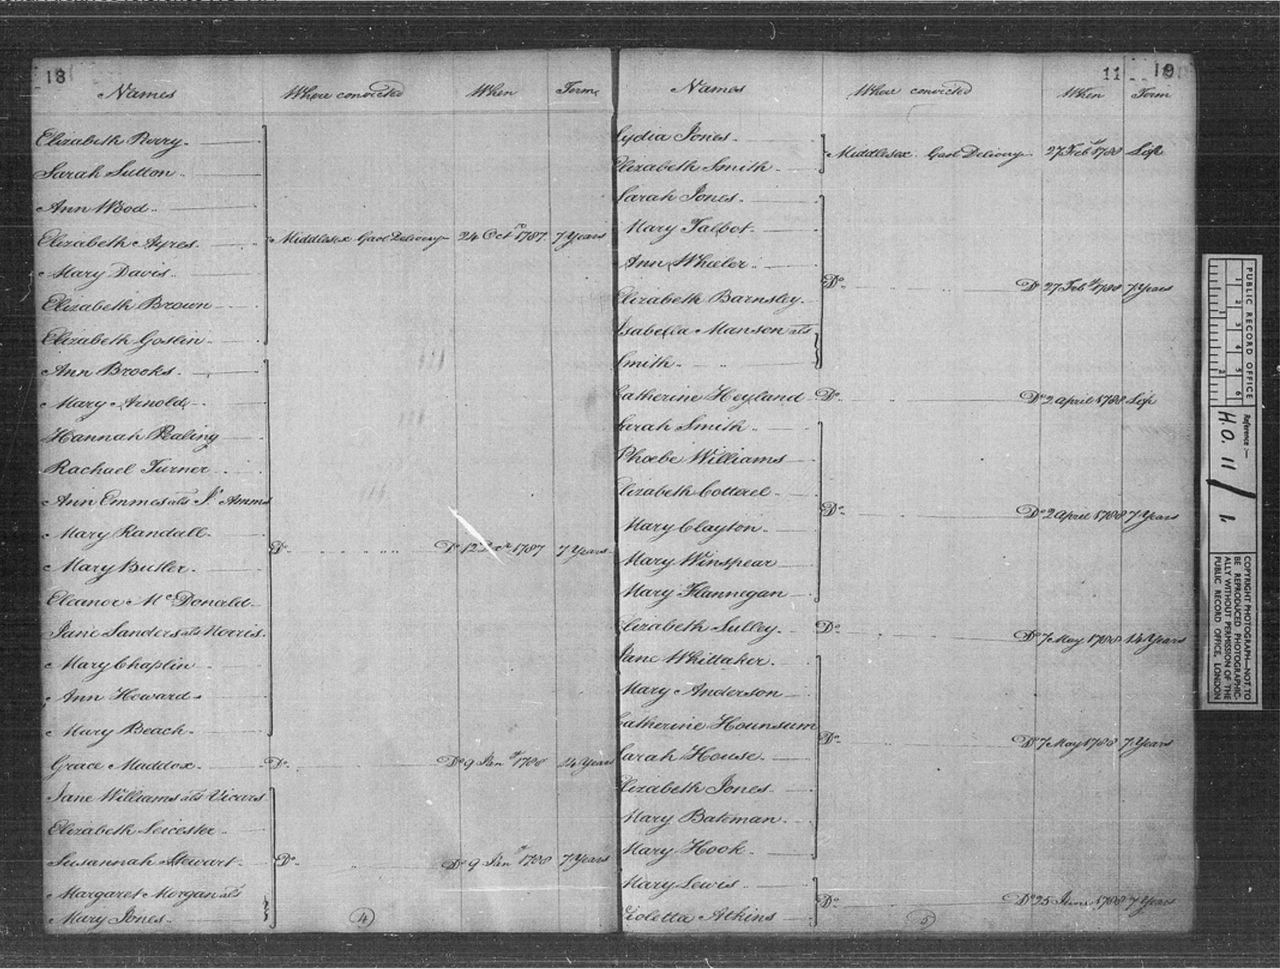 18
Names Where convicted When Term
Elizabeth Perry
Sarah Sutton
Ann Wood
Elizabeth Ayres Middlesex Gaol Delivery 24 Octr 1787 7 Years
Mary Davis
Elizabeth Brown
Elizabeth Goslin
Ann Brooks
Mary Arnold
Hannah Pealing
Rachael Turner
Ann Emmes als
Mary Randall
Do Do 12 1787 7 Years
Mary Butler
Eleanor McDonald
Jane Sanders als Norris
Mary Chaplin
Ann Howard
Mary Beach
Grace Maddox Do Do 9 Jany 1788 14 Years
Jane Williams als Vicars
Elizabeth Leicester
Susannah Stewart Do Do 9 Jany 1788 7 Years
Margaret Morgan als
Mary Jones
4
11 19
Names Where convicted When Term
Lydia Jones
Middlesex Gaol Delivery 27 Feby 1788 Life
Elizabeth Smith
Sarah Jones
Mary Talbot
Ann Wheeler
Do Do 27 Feby 1788 7 Years
Elizabeth Barnsley
Isabella Manson als
Smith
Catherine Heyland Do Do 2 April 1788 Life
Sarah Smith
Phoebe Williams
Elizabeth Cotterel
Do Do 2 April 1788 7 Years
Mary Clayton
Mary Winspear
Mary Flannegan
Elizabeth Sulley Do Do 7 May 1788 14 Years
Jane Whittaker
Mary Anderson
Catherine Hounsum
Do Do 7 May 1788 7 Years
Sarah House
Elizabeth Jones
Mary Bateman
Mary Hook
Mary Lewis
Do Do 25 June 1788 7 Years
Violetta Atkins
5
PUBLIC RECORD OFFICE
1 2 3 4 5 6
1 2
Reference:-
H.O. 11/1.
COPYRIGHT PHOTOGRAPH—NOT TO
BE REPRODUCED PHOTOGRAPHIC-
ALLY WITHOUT PERMISSION OF THE
PUBLIC RECORD OFFICE, LONDON